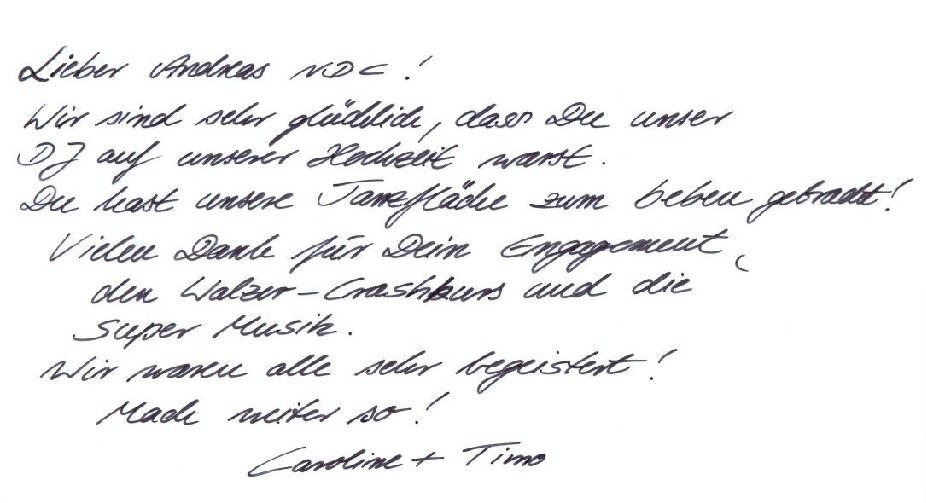 Lieber Andreas NDC!
Wir sind sehr glücklich, dass Du unser
DJ auf unserer Hochzeit warst.
Du hast unsere Tanzfläche zum beben gebracht!
Vielen Dank für Dein Engagement,
den Walzer-Crashkurs und die
super Musik.
Wir waren alle sehr begeistert!
Mach weiter so!
Caroline + Timo